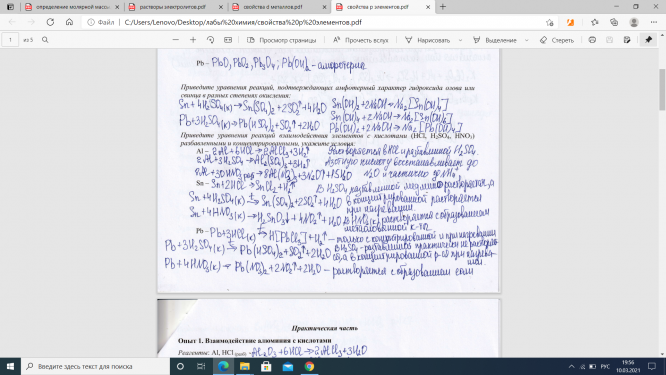 определение молярной массы
растворы электролитов.pdf
свойства d металлов.pdf
свойства p элементов.pdf
Файл C:/Users/Lenovo/Desktop/лабы%20химия/свойства%20p%20элементов.pdf
1 из 5 Просмотр страницы Прочесть вслух Нарисовать Выделение Стереть
Pb – PbO, PbO2, Pb3O4; Pb(OH)2 - амфотерны
Приведите уравнения реакций, подтверждающих амфотерный характер гидроксида олова или
свинца в разных степенях окисления:
Sn+4H2SO4(к)→Sn(SO4)2+2SO2↑+4H2O Sn(OH)2+2NaOH→Na2[Sn(OH)4]
Pb+3H2SO4(к)→Pb(HSO4)2+SO2↑+2H2O Sn(OH)4+2NaOH→Na2[Sn(OH)6]
Pb(OH)2+2NaOH→Na2[Pb(OH)4]
Приведите уравнения реакций взаимодействия элементов с кислотами (HCl, H2SO4, HNO3)
разбавленными и концентрированными, укажите условия:
Al – 2Al+6HCl→2AlCl3+3H2↑ растворяется в HCl и разбавленной H2SO4.
2Al+3H2SO4→Al2(SO4)3+3H2↑ Азотную кислоту восстанавливает до
8Al+30HNO3 разб→8Al(NO3)3+3N2O↑+15H2O N2O и частично до NH4+
Sn – Sn+2HCl→SnCl2+H2↑ в H2SO4 разбавленной медленно растворяется, а
Sn+4H2SO4(к)→Sn(SO4)2+2SO2↑+4H2O в концентрированной растворяется
при нагревании.
Sn+4HNO3(к)→H2SnO3↓+4NO2↑+H2O в HNO3(к) растворяется с образованием
метаоловянной к-ты.
Pb – Pb+3HCl(к)→H[PbCl3]+H2↑ - только с концентрированной и при нагревании
Pb+3H2SO4(к)→Pb(HSO4)2+SO2↑+2H2O в H2SO4 - разбавленной практически не растворяется,
а в концентрированной р-ся при нагревании.
Pb+4HNO3(к)→Pb(NO3)2+2NO2↑+2H2O – растворяется с образованием соли
Практическая часть
Опыт 1. Взаимодействие алюминия с кислотами
Реагенты: Al, HCl(разб) Al2O3+6HCl→2AlCl3+3H2O
Введите здесь текст для поиска
РУС
19:56
10.03.2021